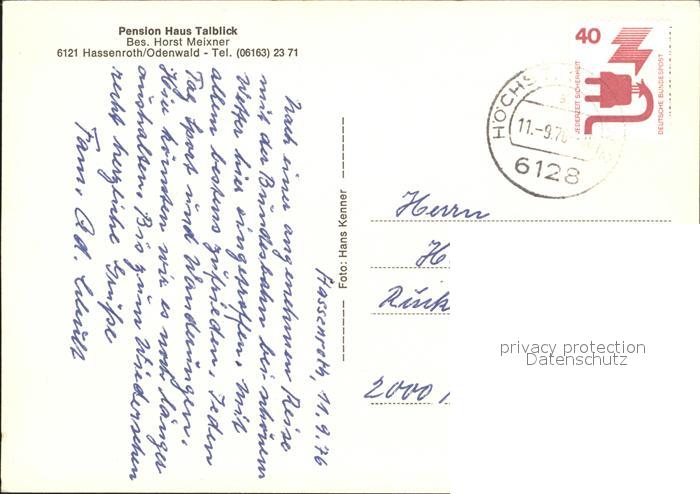 Pension Haus Talblick
Bes. Horst Meixner
6121 Hassenroth/Odenwald - Tel. (06163) 23 71
Hassenroth, 11.9.76
Nach einer angenehmen Reise
mit der Bundesbahn bei schönem
Wetter hier eingetroffen. Mit
allem bestens zufrieden. Jeden
Tag Sport und Wanderungen.
Hier könnten wir es noch länger
aushalten. Bis zum Wiedersehen
recht herzliche Grüße
Fam. Ad.
Foto: Hans Kenner
40
JEDERZEIT SICHERHEIT
DEUTSCHE BUNDESPOST
HÖCHST
11.-9.76
6128
Herrn
H.
Rück
2000
privacy protection
Datenschutz